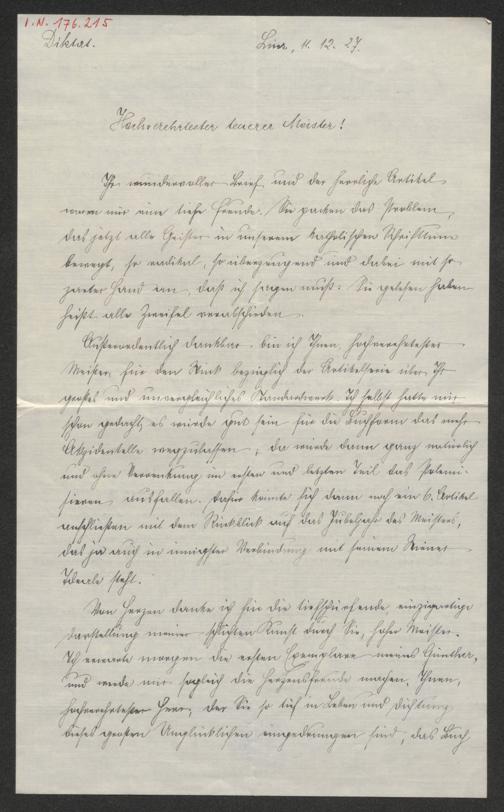 I.N. 176.215
Diktat.
Linz, 11. 12. 27.
Hochverehrtester teuerer Meister!
Ihr wundervoller Brief und der herrliche Artikel
waren mir eine tiefe Freude. Sie packen das Problem,
das jetzt alle Geister in unserem katholischen Schrifttum
bewegt, so radikal, so überzeugend und dabei mit so
zarter Hand an, daß ich sagen muß: Sie gelesen haben
heißt alle Zweifel verabschieden.
Außerordentlich dankbar bin ich Ihnen, hochverehrtester
Meister, für den Wink bezüglich der Artikelserie über Ihr
großes und unvergleichliches Standardwerk. Ich selbst hatte mir
schon gedacht, es würde gut sein für die Buchform das mehr
Akzidentelle wegzulassen; da würde dann ganz natürlich
und ohne Verrenkung im ersten und letzten Teil das Polemi-
sieren ausfallen. Dafür könnte sich dann noch ein 6. Artikel
anschließen mit dem Rückblick auf das Jubeljahr des Meisters,
das ja auch in innigster Verbindung mit seinem Wiener
Ideale steht.
Von Herzen danke ich für die tiefschürfende, einzigartige
Darstellung meiner schlichten Kunst durch Sie, hoher Meister.
Ich erwarte morgen die ersten Exemplare meines Günther,
und werde mir sogleich die Herzensfreude machen, Ihnen,
hochverehrtester Herr, der Sie so tief in Leben und Dichtung
dieses großen Unglücklichen eingedrungen sind, das Buch